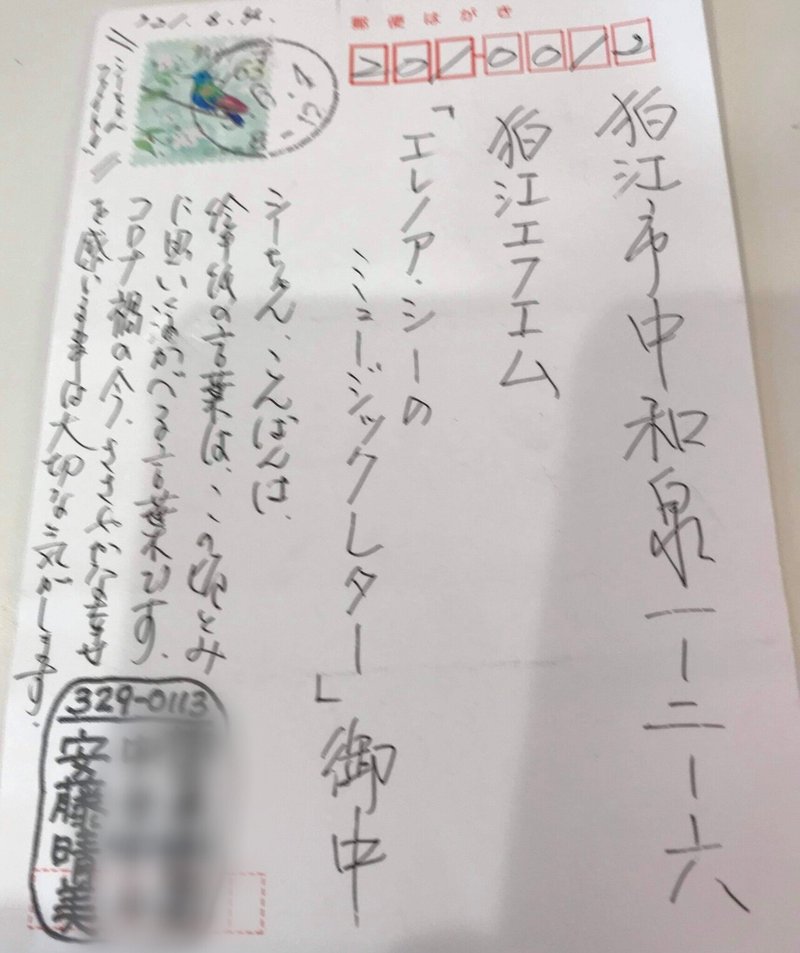 郵便はがき
2010012
狛江市中和泉一ー二ー六
狛江エフエム
「エレノア・シーの
ミュージックレター」御中
シーちゃん、こんばんは、
絵手紙の言葉は、この頃とみ
に思い浮かべる言葉です。
コロナ禍の今、ささやかな幸せ
を感じる事は大切な気がします。
329-0113
安藤